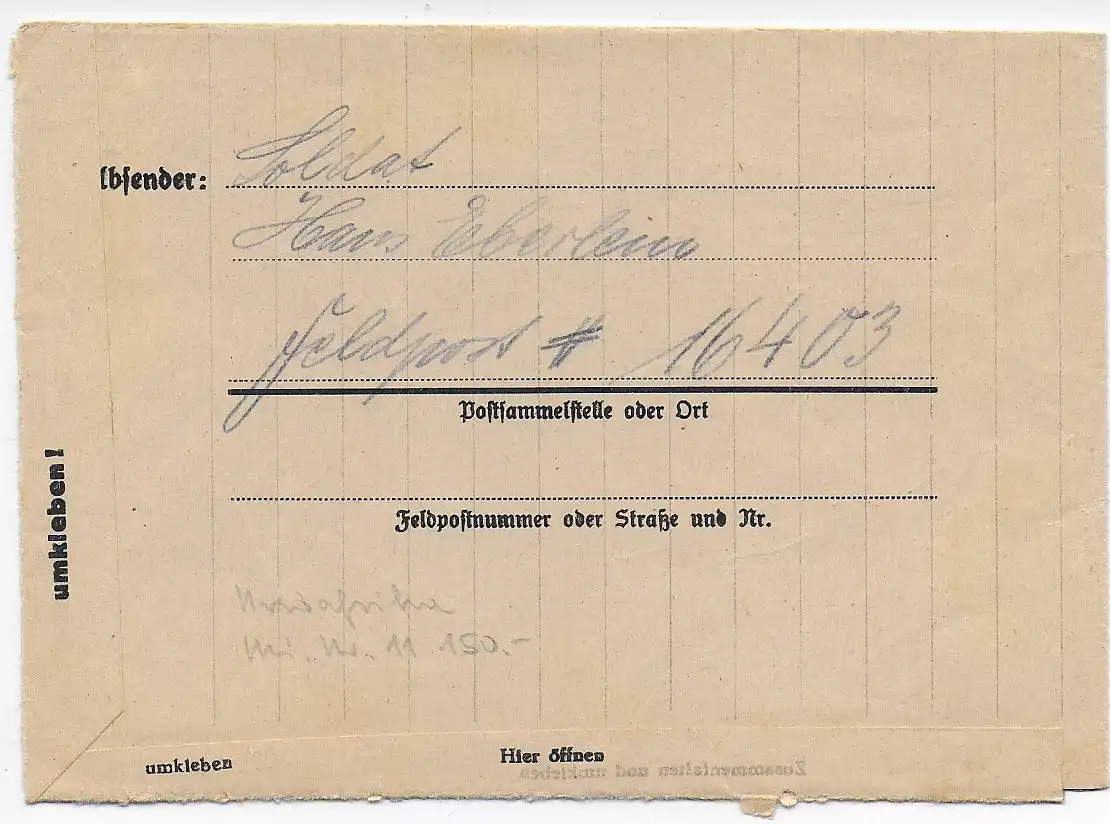 Absender:
Soldat
Hans Eberlein
Feldpost # 16403
Postsammelstelle oder Ort
Feldpostnummer oder Straße und Nr.
umkleben!
Nordafrika
Mi. Nr. 11 150.-
umkleben
Hier öffnen
Zusammenfalten und umkleben